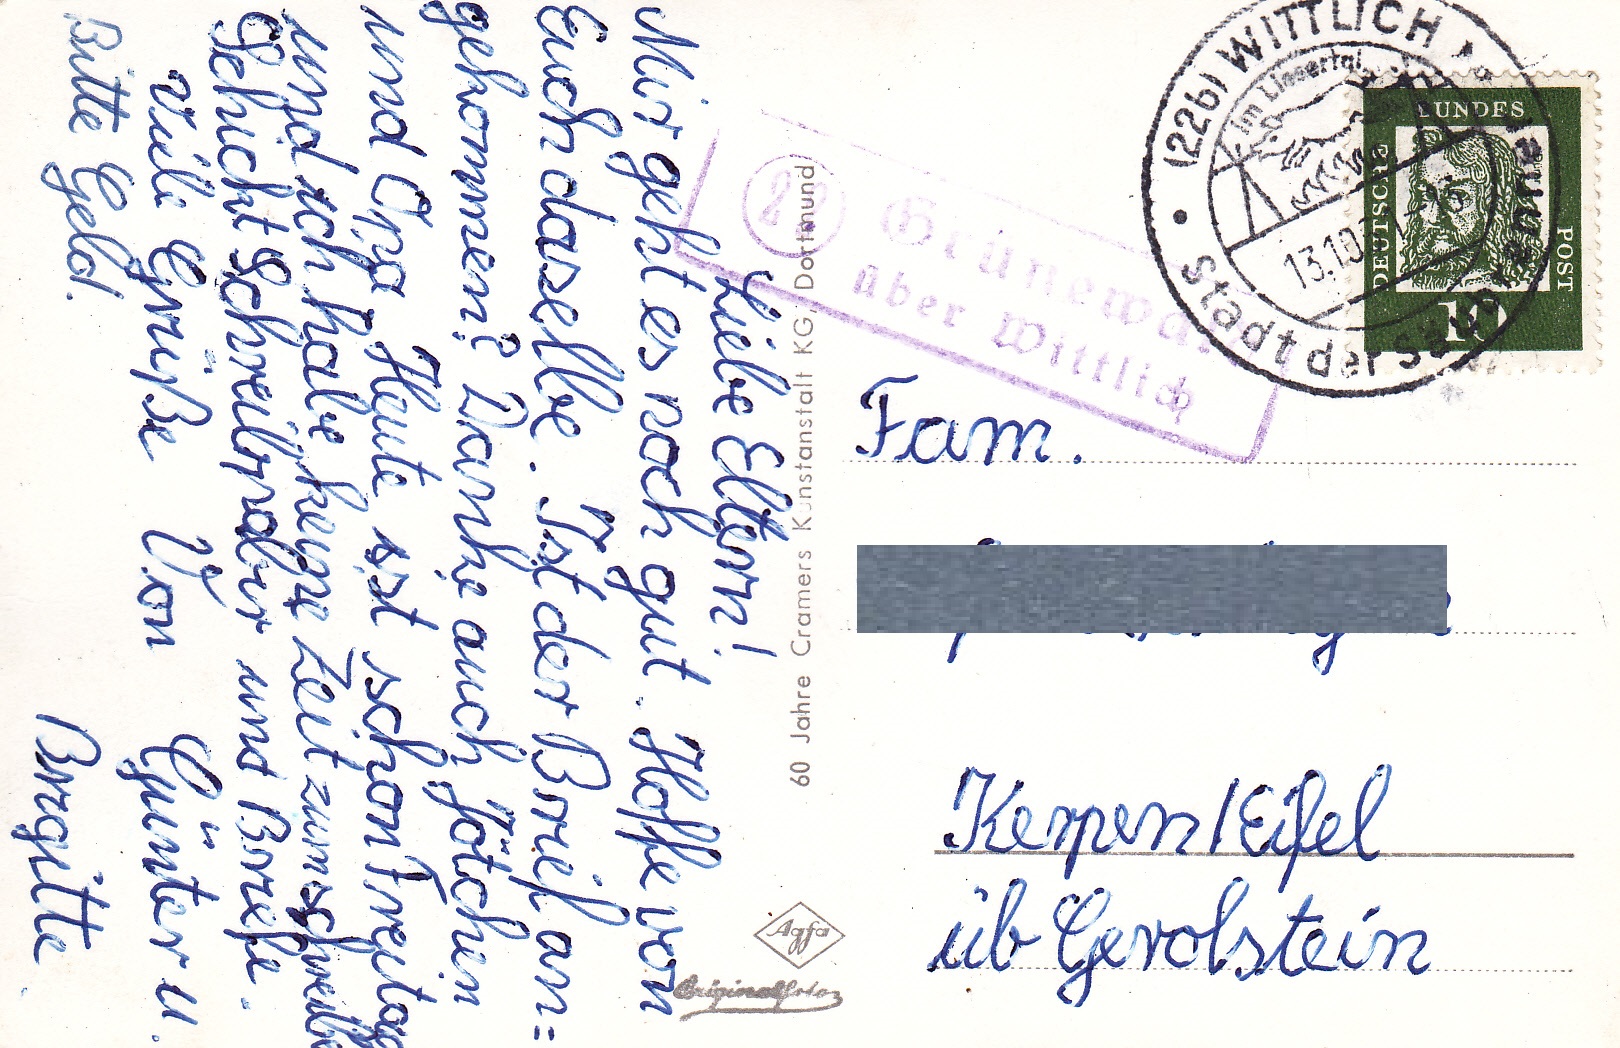 Liebe Eltern!
Mir geht es noch gut. Hoffe von
Euch dasselbe. Ist der Brief an=
gekommen? Danke auch Jötchen
und Opa Heute ist schon Freitag
und ich habe keine Zeit zum schreiben
Schickt Schreibpabir und Brefe.
Viele Grüße Von Günter u.
Bitte Geld. Brgitte
60 Jahre Cramers Kunstanstalt KG, Dortmund
Agfa
Originalfoto
(22b) WITTLICH
im Liesertal
13.10.61-16
Stadt der Säubrenner
DEUTSCHE
BUNDES
POST
10
Grünewald
über Wittlich
Fam.
Kerpen/Eifel
üb Gerolstein